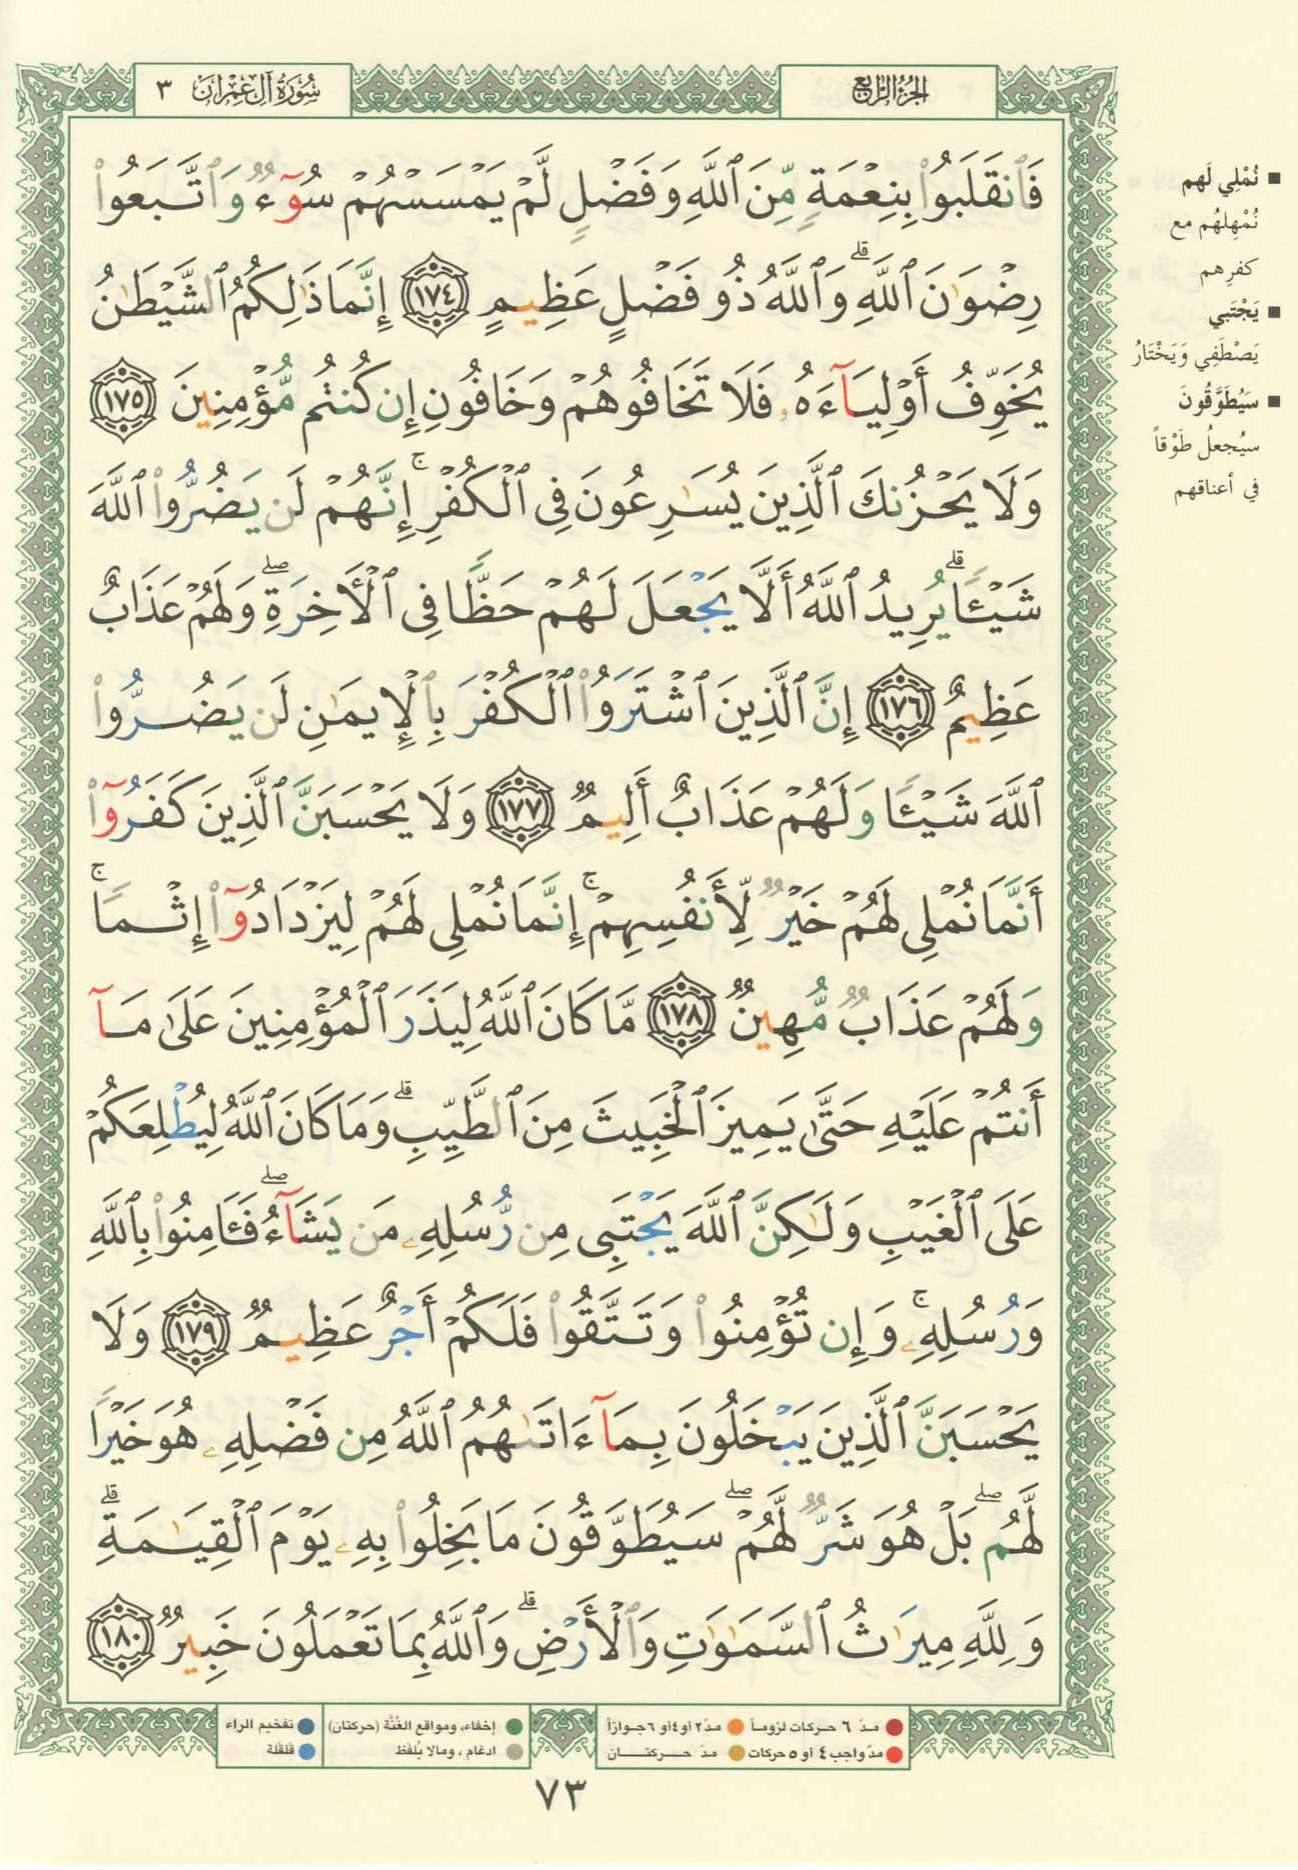 سُورَةُ آلِ عِمْرَانَ ٣
الجُزْءُ الرَّابِعُ
فَٱنقَلَبُوا۟ بِنِعْمَةٍ مِّنَ ٱللَّهِ وَفَضْلٍ لَّمْ يَمْسَسْهُمْ سُوٓءٌ وَٱتَّبَعُوا۟
رِضْوَٰنَ ٱللَّهِ ۗ وَٱللَّهُ ذُو فَضْلٍ عَظِيمٍ ١٧٤ إِنَّمَا ذَٰلِكُمُ ٱلشَّيْطَٰنُ
يُخَوِّفُ أَوْلِيَآءَهُۥ فَلَا تَخَافُوهُمْ وَخَافُونِ إِن كُنتُم مُّؤْمِنِينَ ١٧٥
وَلَا يَحْزُنكَ ٱلَّذِينَ يُسَٰرِعُونَ فِى ٱلْكُفْرِ ۚ إِنَّهُمْ لَن يَضُرُّوا۟ ٱللَّهَ
شَيْـًٔا ۗ يُرِيدُ ٱللَّهُ أَلَّا يَجْعَلَ لَهُمْ حَظًّا فِى ٱلْءَاخِرَةِ ۖ وَلَهُمْ عَذَابٌ
عَظِيمٌ ١٧٦ إِنَّ ٱلَّذِينَ ٱشْتَرَوُا۟ ٱلْكُفْرَ بِٱلْإِيمَٰنِ لَن يَضُرُّوا۟
ٱللَّهَ شَيْـًٔا وَلَهُمْ عَذَابٌ أَلِيمٌ ١٧٧ وَلَا يَحْسَبَنَّ ٱلَّذِينَ كَفَرُوٓا۟
أَنَّمَا نُمْلِى لَهُمْ خَيْرٌ لِّأَنفُسِهِمْ ۚ إِنَّمَا نُمْلِى لَهُمْ لِيَزْدَادُوٓا۟ إِثْمًا ۚ
وَلَهُمْ عَذَابٌ مُّهِينٌ ١٧٨ مَّا كَانَ ٱللَّهُ لِيَذَرَ ٱلْمُؤْمِنِينَ عَلَىٰ مَآ
أَنتُمْ عَلَيْهِ حَتَّىٰ يَمِيزَ ٱلْخَبِيثَ مِنَ ٱلطَّيِّبِ ۗ وَمَا كَانَ ٱللَّهُ لِيُطْلِعَكُمْ
عَلَى ٱلْغَيْبِ وَلَٰكِنَّ ٱللَّهَ يَجْتَبِى مِن رُّسُلِهِۦ مَن يَشَآءُ ۖ فَـَٔامِنُوا۟ بِٱللَّهِ
وَرُسُلِهِۦ ۚ وَإِن تُؤْمِنُوا۟ وَتَتَّقُوا۟ فَلَكُمْ أَجْرٌ عَظِيمٌ ١٧٩ وَلَا
يَحْسَبَنَّ ٱلَّذِينَ يَبْخَلُونَ بِمَآ ءَاتَىٰهُمُ ٱللَّهُ مِن فَضْلِهِۦ هُوَ خَيْرًا
لَّهُم ۖ بَلْ هُوَ شَرٌّ لَّهُمْ ۖ سَيُطَوَّقُونَ مَا بَخِلُوا۟ بِهِۦ يَوْمَ ٱلْقِيَٰمَةِ ۗ
وَلِلَّهِ مِيرَٰثُ ٱلسَّمَٰوَٰتِ وَٱلْأَرْضِ ۗ وَٱللَّهُ بِمَا تَعْمَلُونَ خَبِيرٌ ١٨٠
■ نُمْلِي لَهم
نُمْهِلهُم مع
كفرِهم
■ يَجْتَبي
يَصْطَفِي وَيَخْتَارُ
■ سَيُطَوَّقُونَ
سيُجعلُ طَوْقاً
في أعناقهم
مدّ ٦ حركات لزوماً ● مدّ ٢ أو ٤ أو ٦ جوازاً
مدّ واجب ٤ أو ٥ حركات ● مدّ حركتان
إخفاء، ومواقع الغُنَّة (حركتان) ● تفخيم الراء
ادغام ، ومالا يُلفَظ ● قلقلة
٧٣